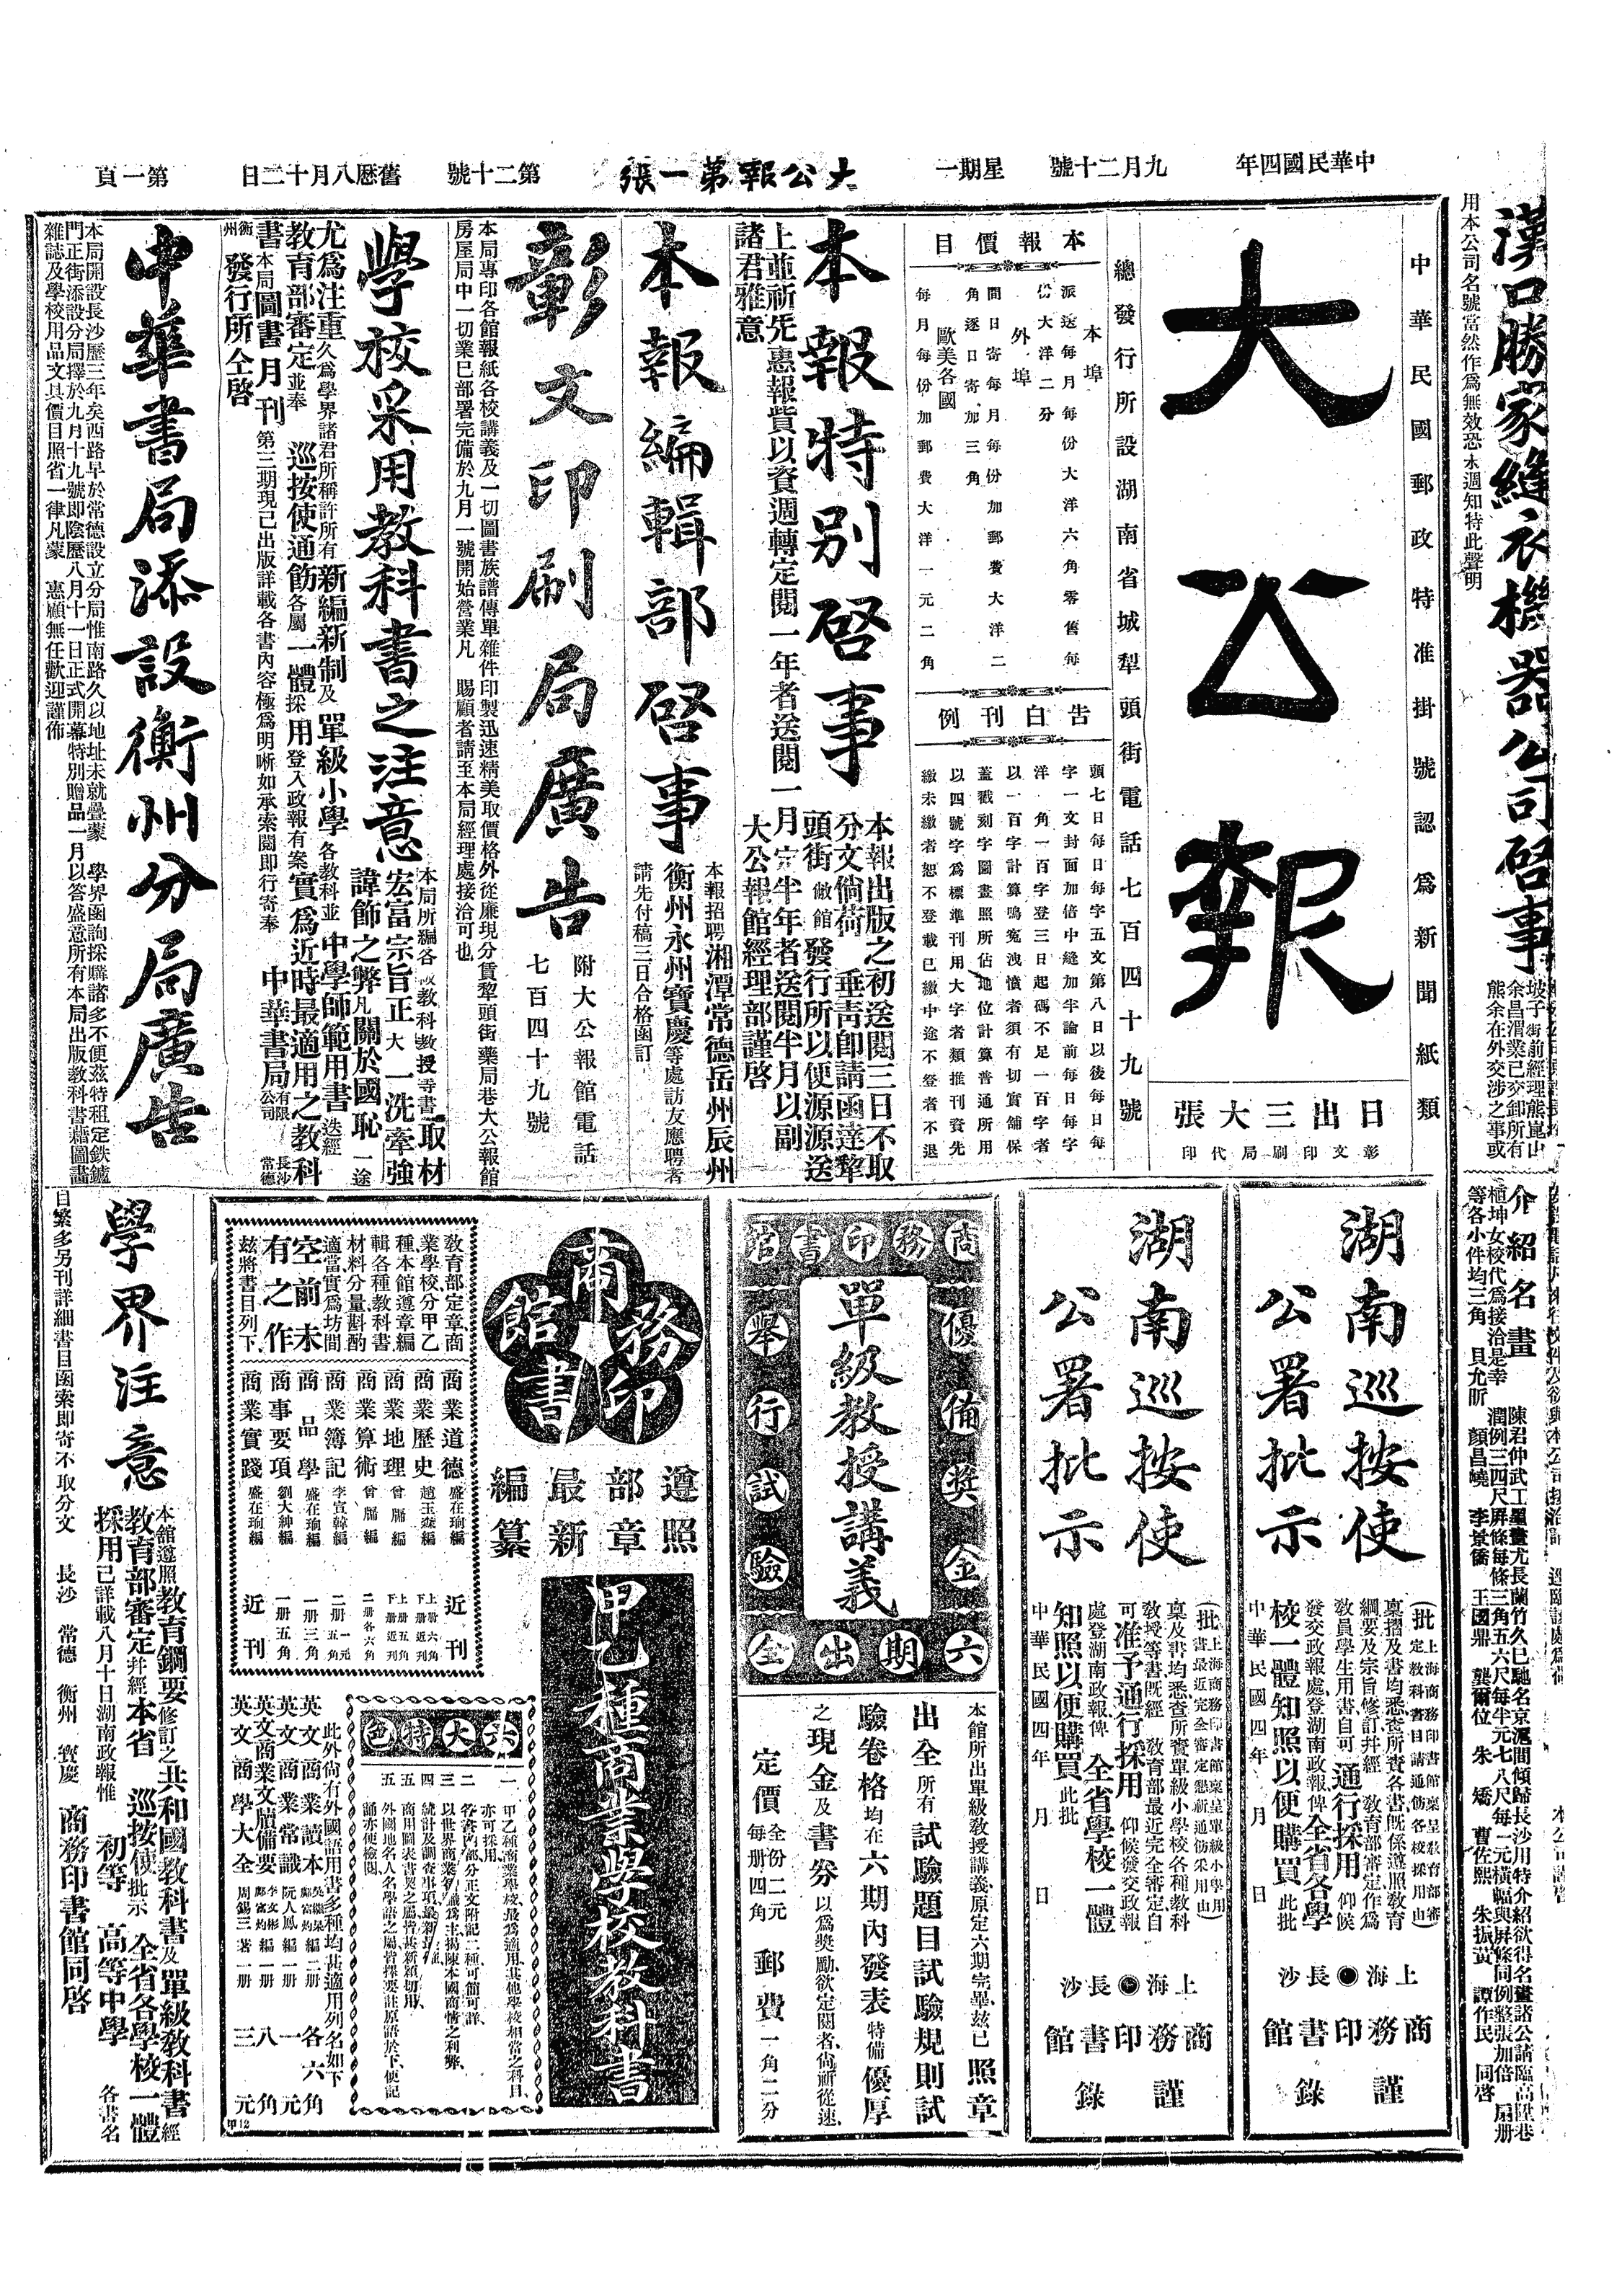 中華民國四年 九月二十號 星期一 大公報第一張 第二十號 舊歷八月十二日 第一頁
漢口勝家縫衣機器公司啓事
余昌渭業已交卸所有
熊余在外交涉之事或
用本公司名號當然作為無效恐未週知特此聲明
中華民國郵政特准掛號認為新聞紙類
大公報
日出三大張
彰文印刷局代印
總發行所設湖南省城犁頭街電話七百四十九號
本報價目
本埠
派送每月每份大洋六角零售每
份大洋二分
外埠
間日寄每月每份加郵費大洋二
角逐日寄加三角
歐美各國
每月每份加郵費大洋一元二角
告白刊例
頭七日每日每字五文第八日以後每日每
字一文封面加倍中縫加半論前每日每字
洋一角一百字登三日起碼不足一百字者
以一百字計算鳴冤洩憤者須有切實舖保
蓋戳刻字圖畫照所佔地位計算普通所用
以四號字為標準刊用大字者類推刊資先
繳未繳者恕不登載已繳中途不登者不退
本報特別啓事
本報出版之初送閱三日不取
分文倘荷 垂青即請函達犂
頭街敝館發行所以便源源送
上並祈先惠報貲以資週轉定閱一年者送閱一月定半年者送閱半月以副
諸君雅意 大公報館經理部謹啓
本報編輯部啓事
本報招聘湘潭常德岳州辰州
衡州永州寶慶等處訪友應聘者
請先付稿三日合格函訂
彰文印刷局廣告
附大公報館電話
七百四十九號
本局專印各館報紙各校講義及一切圖書族譜傳單雜件印製迅速精美取價格外從廉現分賃犂頭街藥局巷大公報館
房屋局中一切業已部署完備於九月一號開始營業凡 賜顧者請至本局經理處接洽可也
學校采用教科書之注意
本局所編各教科教授等書取材
宏富宗旨正大一洗牽強
諱飾之弊凡關於國恥一途
尤為注重久為學界諸君所稱許所有新編新制及單級小學各教科並中學師範用書迭經
教育部審定並奉 巡按使通飭各屬一體採用登入政報有案實為近時最適用之教科
書本局圖書月刊第三期現已出版詳載各書內容極為明晰如承索閱即行寄奉 中華書局有限公司 長沙 常德
衡州 發行所仝啓
中華書局添設衡州分局廣告
本局開設長沙歷三年矣西路早於常德設立分局惟南路久以地址未就疊蒙 學界函詢採購諸多不便茲特租定鉄鑪
門正街添設分局擇於九月十九號即陰歷八月十一日正式開幕特別贈品一月以答盛意所有本局出版教科書籍圖畫
雜誌及學校用品文具價目照省一律凡蒙 惠顧無任歡迎謹佈
介紹名畫
陳君仲武工墨畫尤長蘭竹久已馳名京滬間傾歸長沙用特介紹欲得名畫諸公請臨高陞巷
櫃坤女校代為接洽是幸 潤例三四尺屏條每條三角五六尺每半元七八尺每一元橫幅與屏條同例整張加倍 扇册
等各小件均三角 貝允昕 顏昌嶢 李景僑 王國鼎 龔爾位 朱矯 曹佐熙 朱振黃 譚作民 同啓
湖南巡按使
公署批示
(批上海商務印書館稟呈教育部審
定教科書目請通飭各校採用由)
稟摺及書均悉查所賷各書旣係遵照教育
綱要及宗旨修訂幷經 教育部審定作為
教員學生用書自可 通行採用 仰候
發交政報處登湖南政報俾全省各學
校一體知照以便購買此批
中華民國四年 月 日
上海 長沙
商務印書館
謹錄
湖南巡按使
公署批示
(批上海商務印書館稟呈單級小學用
書最近完全審定懇新通飭采用由)
稟及書均悉查所賷單級小學校各種教科
教授等書旣經 教育部最近完全審定自
可准予通行採用 仰候發交政報
處登湖南政報俾 全省學校一體
知照以便購買此批
中華民國四年 月 日
上海 長沙
商務印書館
謹錄
商務印書館
單級教授講義
優備獎金
舉行試驗
六期出全
本館所出單級教授講義原定六期完畢茲已照章
出全所有試驗題目試驗規則試
驗卷格均在六期內發表特備優厚
之現金及書券以為獎勵欲定閱者尚祈從速
定價全份二元 每册四角 郵費一角二分
商務印書館
遵照部章最新編纂
甲乙種商業學校教科書
教育部定章商
業學校分甲乙
種本館遵章編
輯各種教科書
材料分量斟酌
適當實為坊間
空前未
有之作
茲將書目列下
商業道德 盛在珦編 近刊
商業歷史 趙玉森編 上册六角 下册近刊
商業地理 曾膺編 上册五角 下册近刊
商業算術 曾膺編 二册各六角
商業簿記 李宣韓編 二册一元五角
商品學 盛在珦編 一册三角
商事要項 劉大紳編 一册五角
商業實踐 盛在珦編 近刊
六大特色
一 甲乙種商業學校最為適用其他學校相當之科目亦可採用
二 各書內部分正文附記二種可簡可詳
四 統計及調查事項最新
五 商用圖表書契之屬皆甚新穎切用
外國地名人名學語之屬皆擇要註原語於下便記誦亦便檢閱
此外尙有外國語用書多種均甚適用列名如下
英文商業讀本 二册 各六角
英文商業常識 阮人鳳編 一册 一元
英文商業文牘備要 李文彬 編 一册 八角
英文商學大全 周錫三著 一册 三元
學界注意
本舘遵照教育綱要修訂之共和國教科書及單級教科書經
教育部審定幷經本省 巡按使批示 全省各學校一體
採用已詳載八月十日湖南政報惟 初等 高等中學 各書名
目繁多另刊詳細書目函索即寄不取分文 長沙 常德 衡州 寶慶 商務印書館同啓